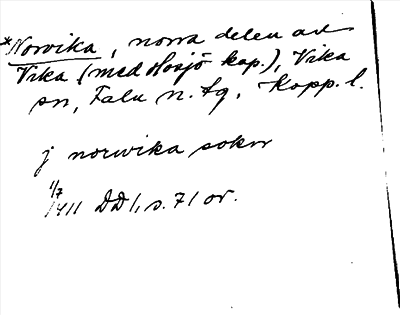 *Norvika, norra delen av
Vika (med Hosjö kap.), Vika
sn, Falu n. tg, Kopp. l.
j norwika sokn
1/7 1411 DD 1, s. 71 or.